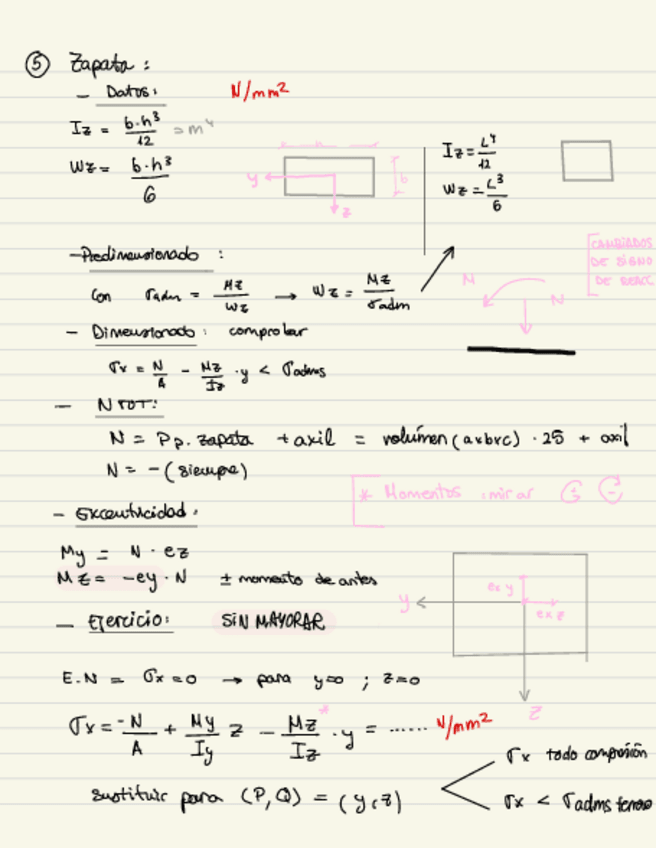 ⑤ Zapata :
- Datos: N/mm²
Iz = b·h³/12 = m⁴
Wz = b·h³/6
y
z
b
Iz = L⁴/12
Wz = L³/6
- Predimensionado :
con σadm = Mz/Wz → Wz = Mz/σadm
[CAMBIADOS
DE SIGNO
DE REACC
N
N
- Dimensionado : comprobar
σx = N/A - Mz/Iz · y < σadms
- NTOT:
N = Pp. zapata + axil = volúmen (axbxc) · 25 + axil
N = - (siempre)
* Momentos : mirar
- Excentricidad :
My = N · ez
Mz = -ey · N ± momento de antes
- Ejercicio: SIN MAYORAR
y
z
E.N = σx = 0 → para y=0 ; z=0
σx = -N/A + My/Iy z - Mz/Iz * · y = ...... N/mm²
sustituir para (P, Q) = (y, z)
σx todo compresión
σx < σadms